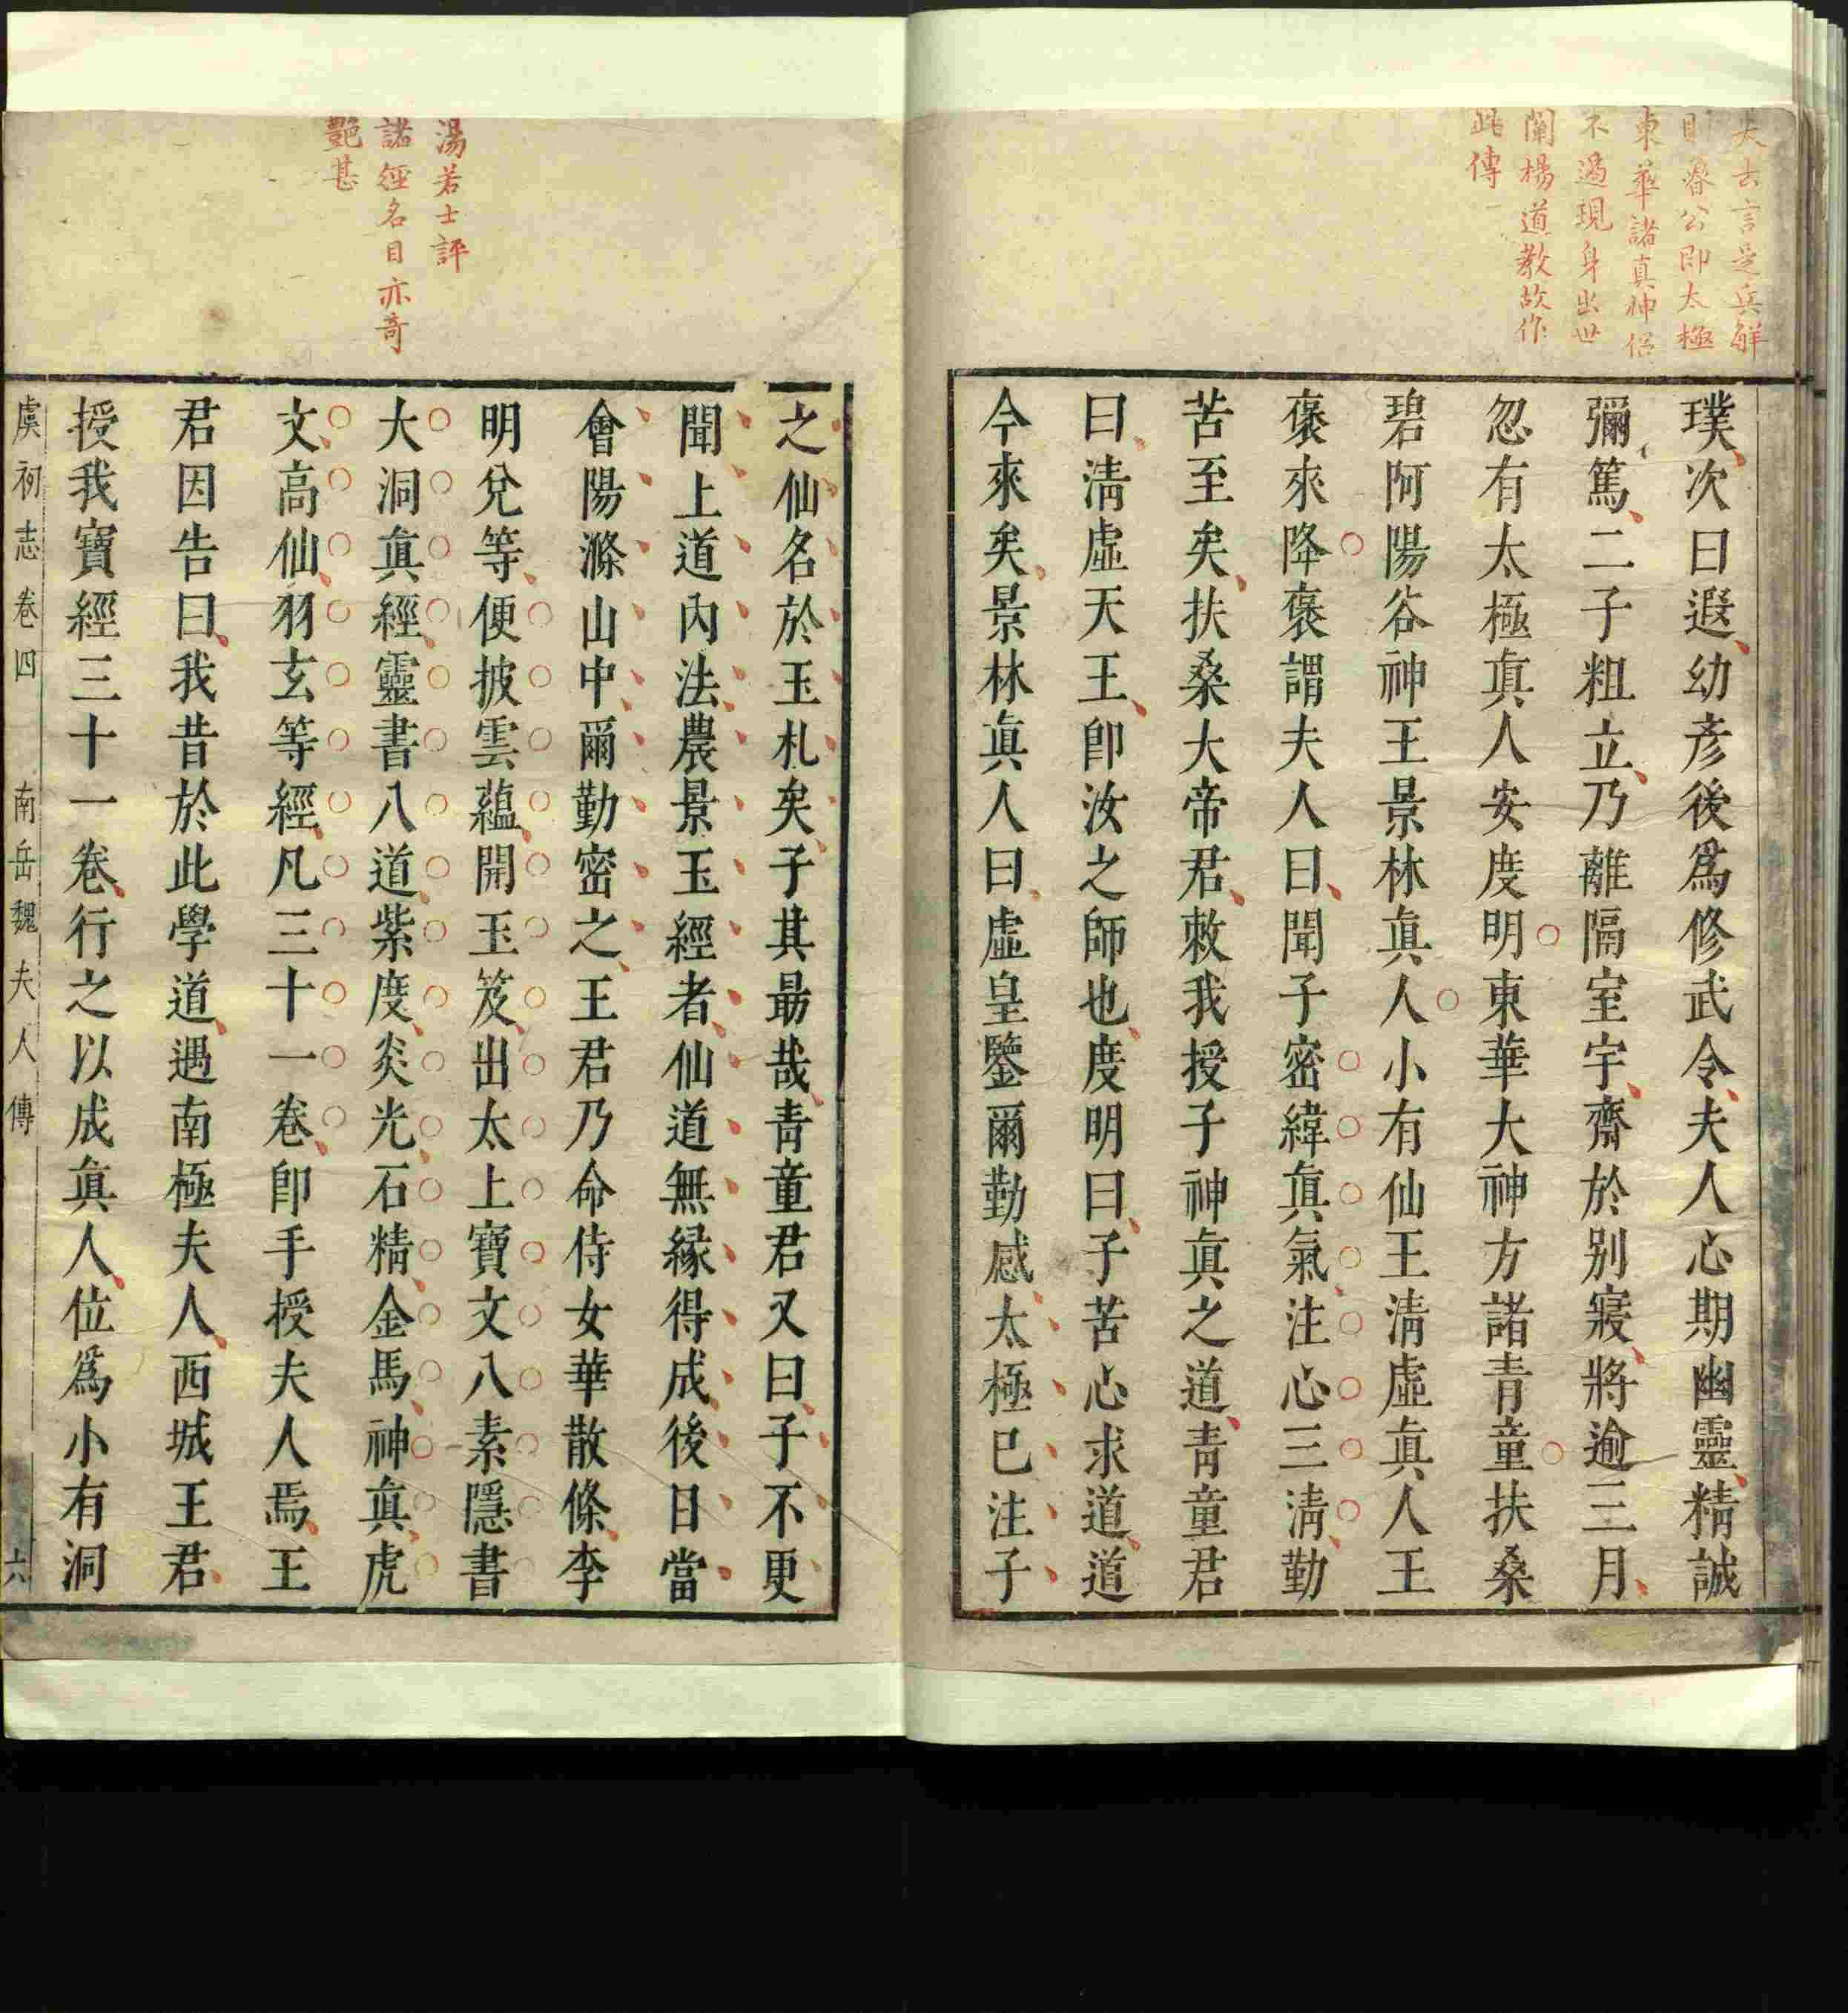 夫去言是兵解
則睿公即太極
東華諸真神侶
不過現身出世
闡楊道教故作
此傳
璞次曰遐幼彥後爲修武令夫人心期幽靈精誠
彌篤二子粗立乃離隔室宇齋於別寢將逾三月
忽有太極眞人安度明東華大神方諸青童扶桑
碧阿陽谷神王景林眞人小有仙王淸虛眞人王
褒來降褒謂夫人曰聞子密緯眞氣注心三淸勤
苦至矣扶桑大帝君敕我授子神眞之道青童君
曰淸虛天王卽汝之師也度明曰子苦心求道道
今來矣景林眞人曰虛皇鑒爾勤感太極已注子
湯若士評
諸經名目亦奇
艷甚
之仙名於玉札矣子其勗哉青童君又曰子不更
聞上道內法農景玉經者仙道無緣得成後日當
會陽滌山中爾勤密之王君乃命侍女華散條李
明兌等便披雲蘊開玉笈出太上寶文八素隱書
大洞眞經靈書八道紫度炎光石精金馬神眞虎
文高仙羽玄等經凡三十一卷卽手授夫人焉王
君因告曰我昔於此學道遇南極夫人西城王君
授我寶經三十一卷行之以成眞人位爲小有洞
虞初志卷四 南岳魏夫人傳 六